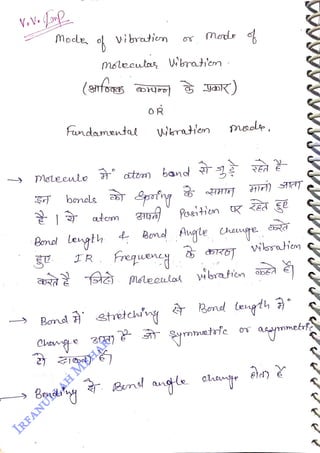 V.V. Imp
Mode of Vibration or Mode of
Molecular Vibration.
(आण्विक कम्पन के प्रकार)
OR
Fundamental Vibration mode.
→ Molecule में atom band से जुड़े रहते है
इन bonds को Spring के समान माना जाता
है। ये atom अपनी Position पर रहते हुए
Bond length & Bond Angle change करते
हुए IR Frequency के कारण vibration
करते है जिसे Molecular vibration कहते है।
→ Bond में stretching से Bond length में
change आता है जो symmetric or asymmetric
हो सकता है।
→ Bending से Bond angle change होता है
IRFANULLAH